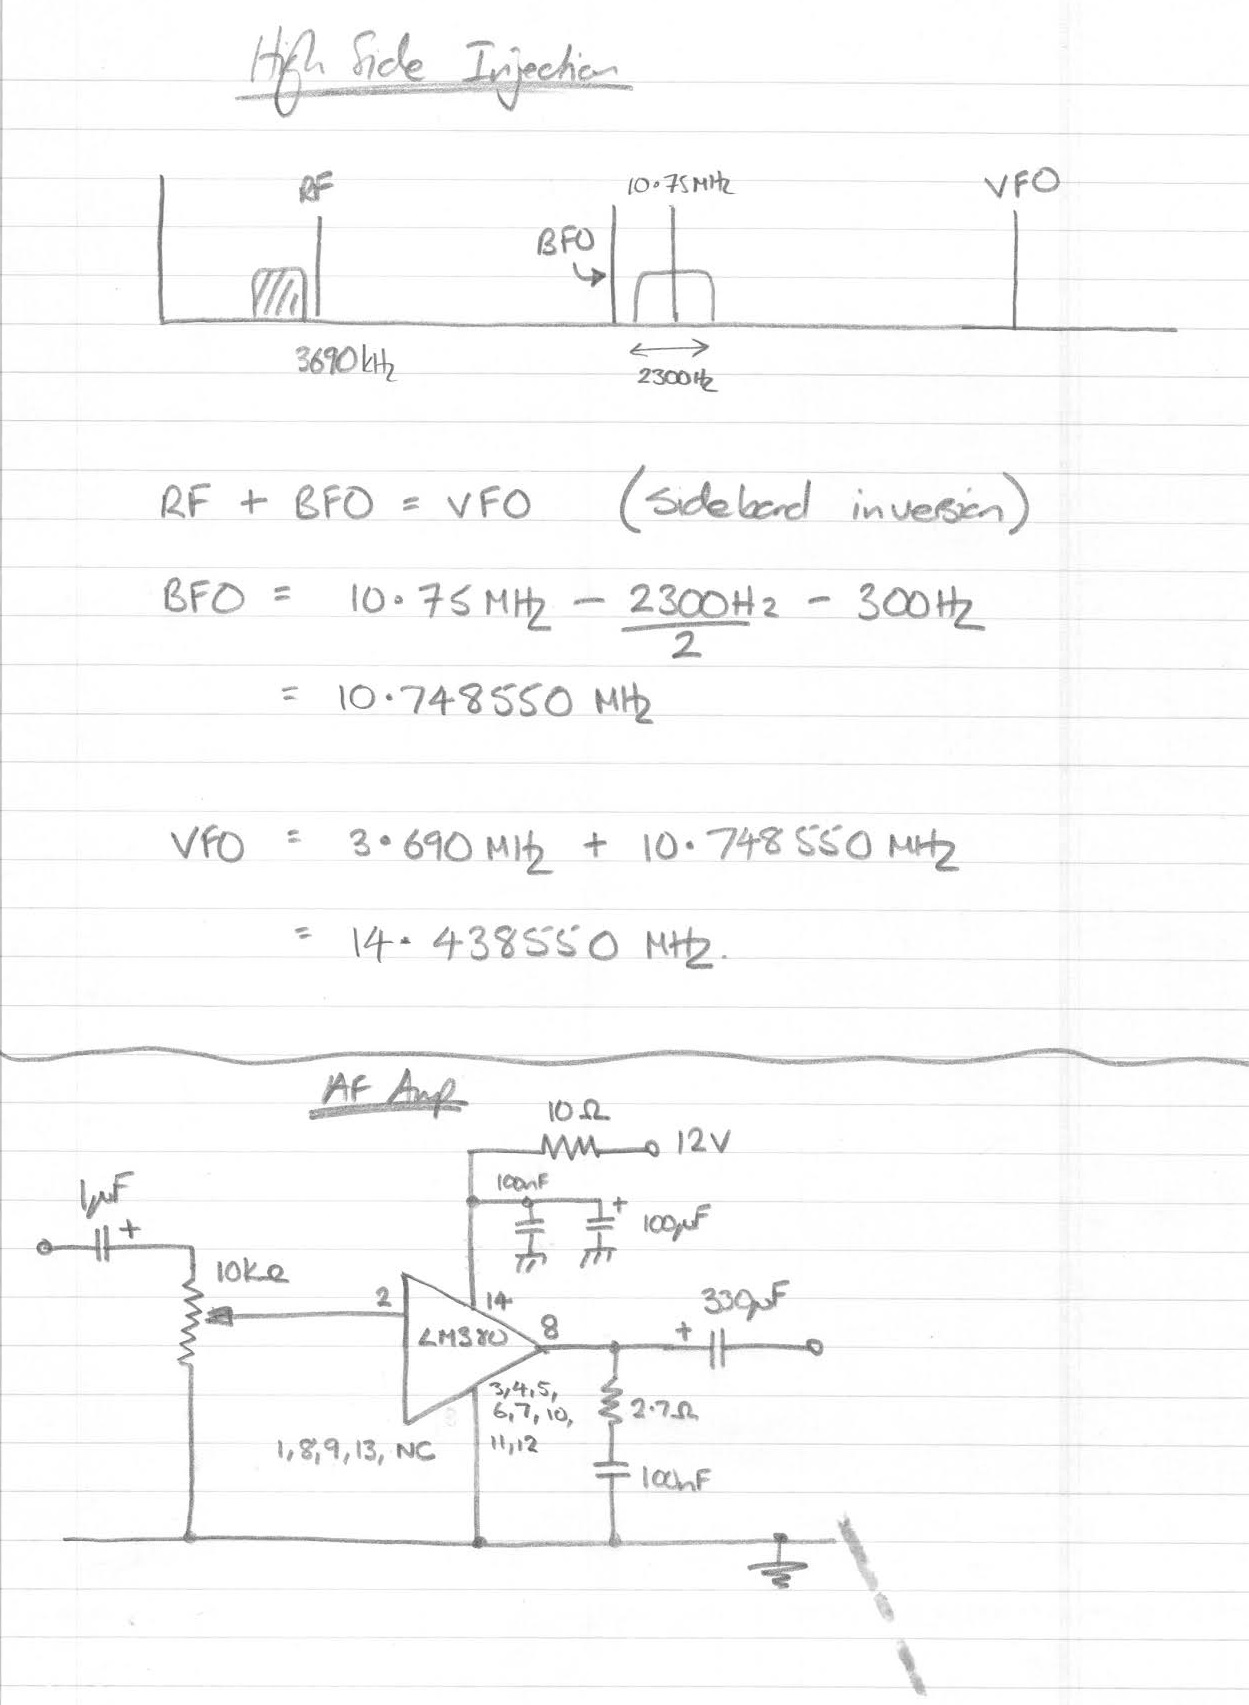 High Side Injection
RF
10.75MHz
VFO
BFO
3690kHz
2300Hz
RF + BFO = VFO (Sideband inversion)
BFO = 10.75MHz - 2300Hz/2 - 300Hz
= 10.748550 MHz
VFO = 3.690MHz + 10.748550MHz
= 14.438550 MHz.
AF Amp
10Ω
12V
100nF
1µF
+
+
100µF
10kΩ
2
14
330µF
LM380
8
+
3,4,5,
6,7,10,
11,12
2.7Ω
1,8,9,13, NC
100nF